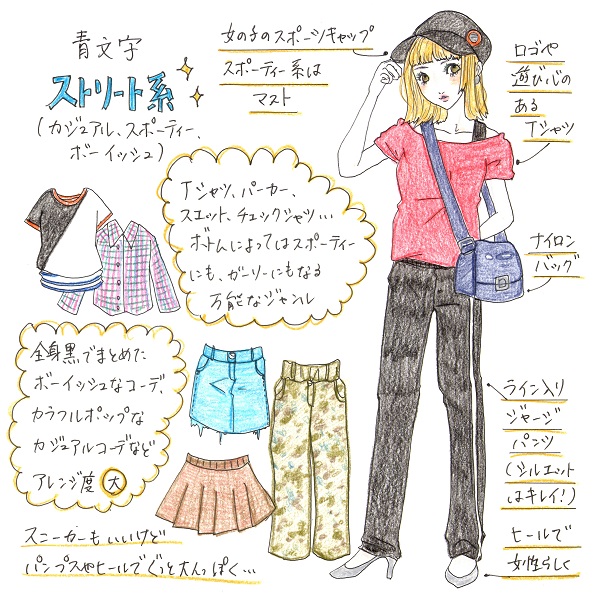 青文字
ストリート系
(カジュアル、スポーティー、
ボーイッシュ)
女の子のスポーツキャップ
スポーティー系は
マスト
ロゴや
遊び心の
ある
Tシャツ
Tシャツ、パーカー、
スエット、チェックシャツ…
ボトムによってはスポーティー
にも、ガーリーにもなる
万能なジャンル
ナイロン
バッグ
全身黒でまとめた
ボーイッシュなコーデ、
カラフルポップな
カジュアルコーデなど
アレンジ度 大
ライン入り
ジャージ
パンツ
(シルエット
はキレイ!)
スニーカーもいいけど
パンプスやヒールでぐっと大人っぽく…
ヒールで
女性らしく